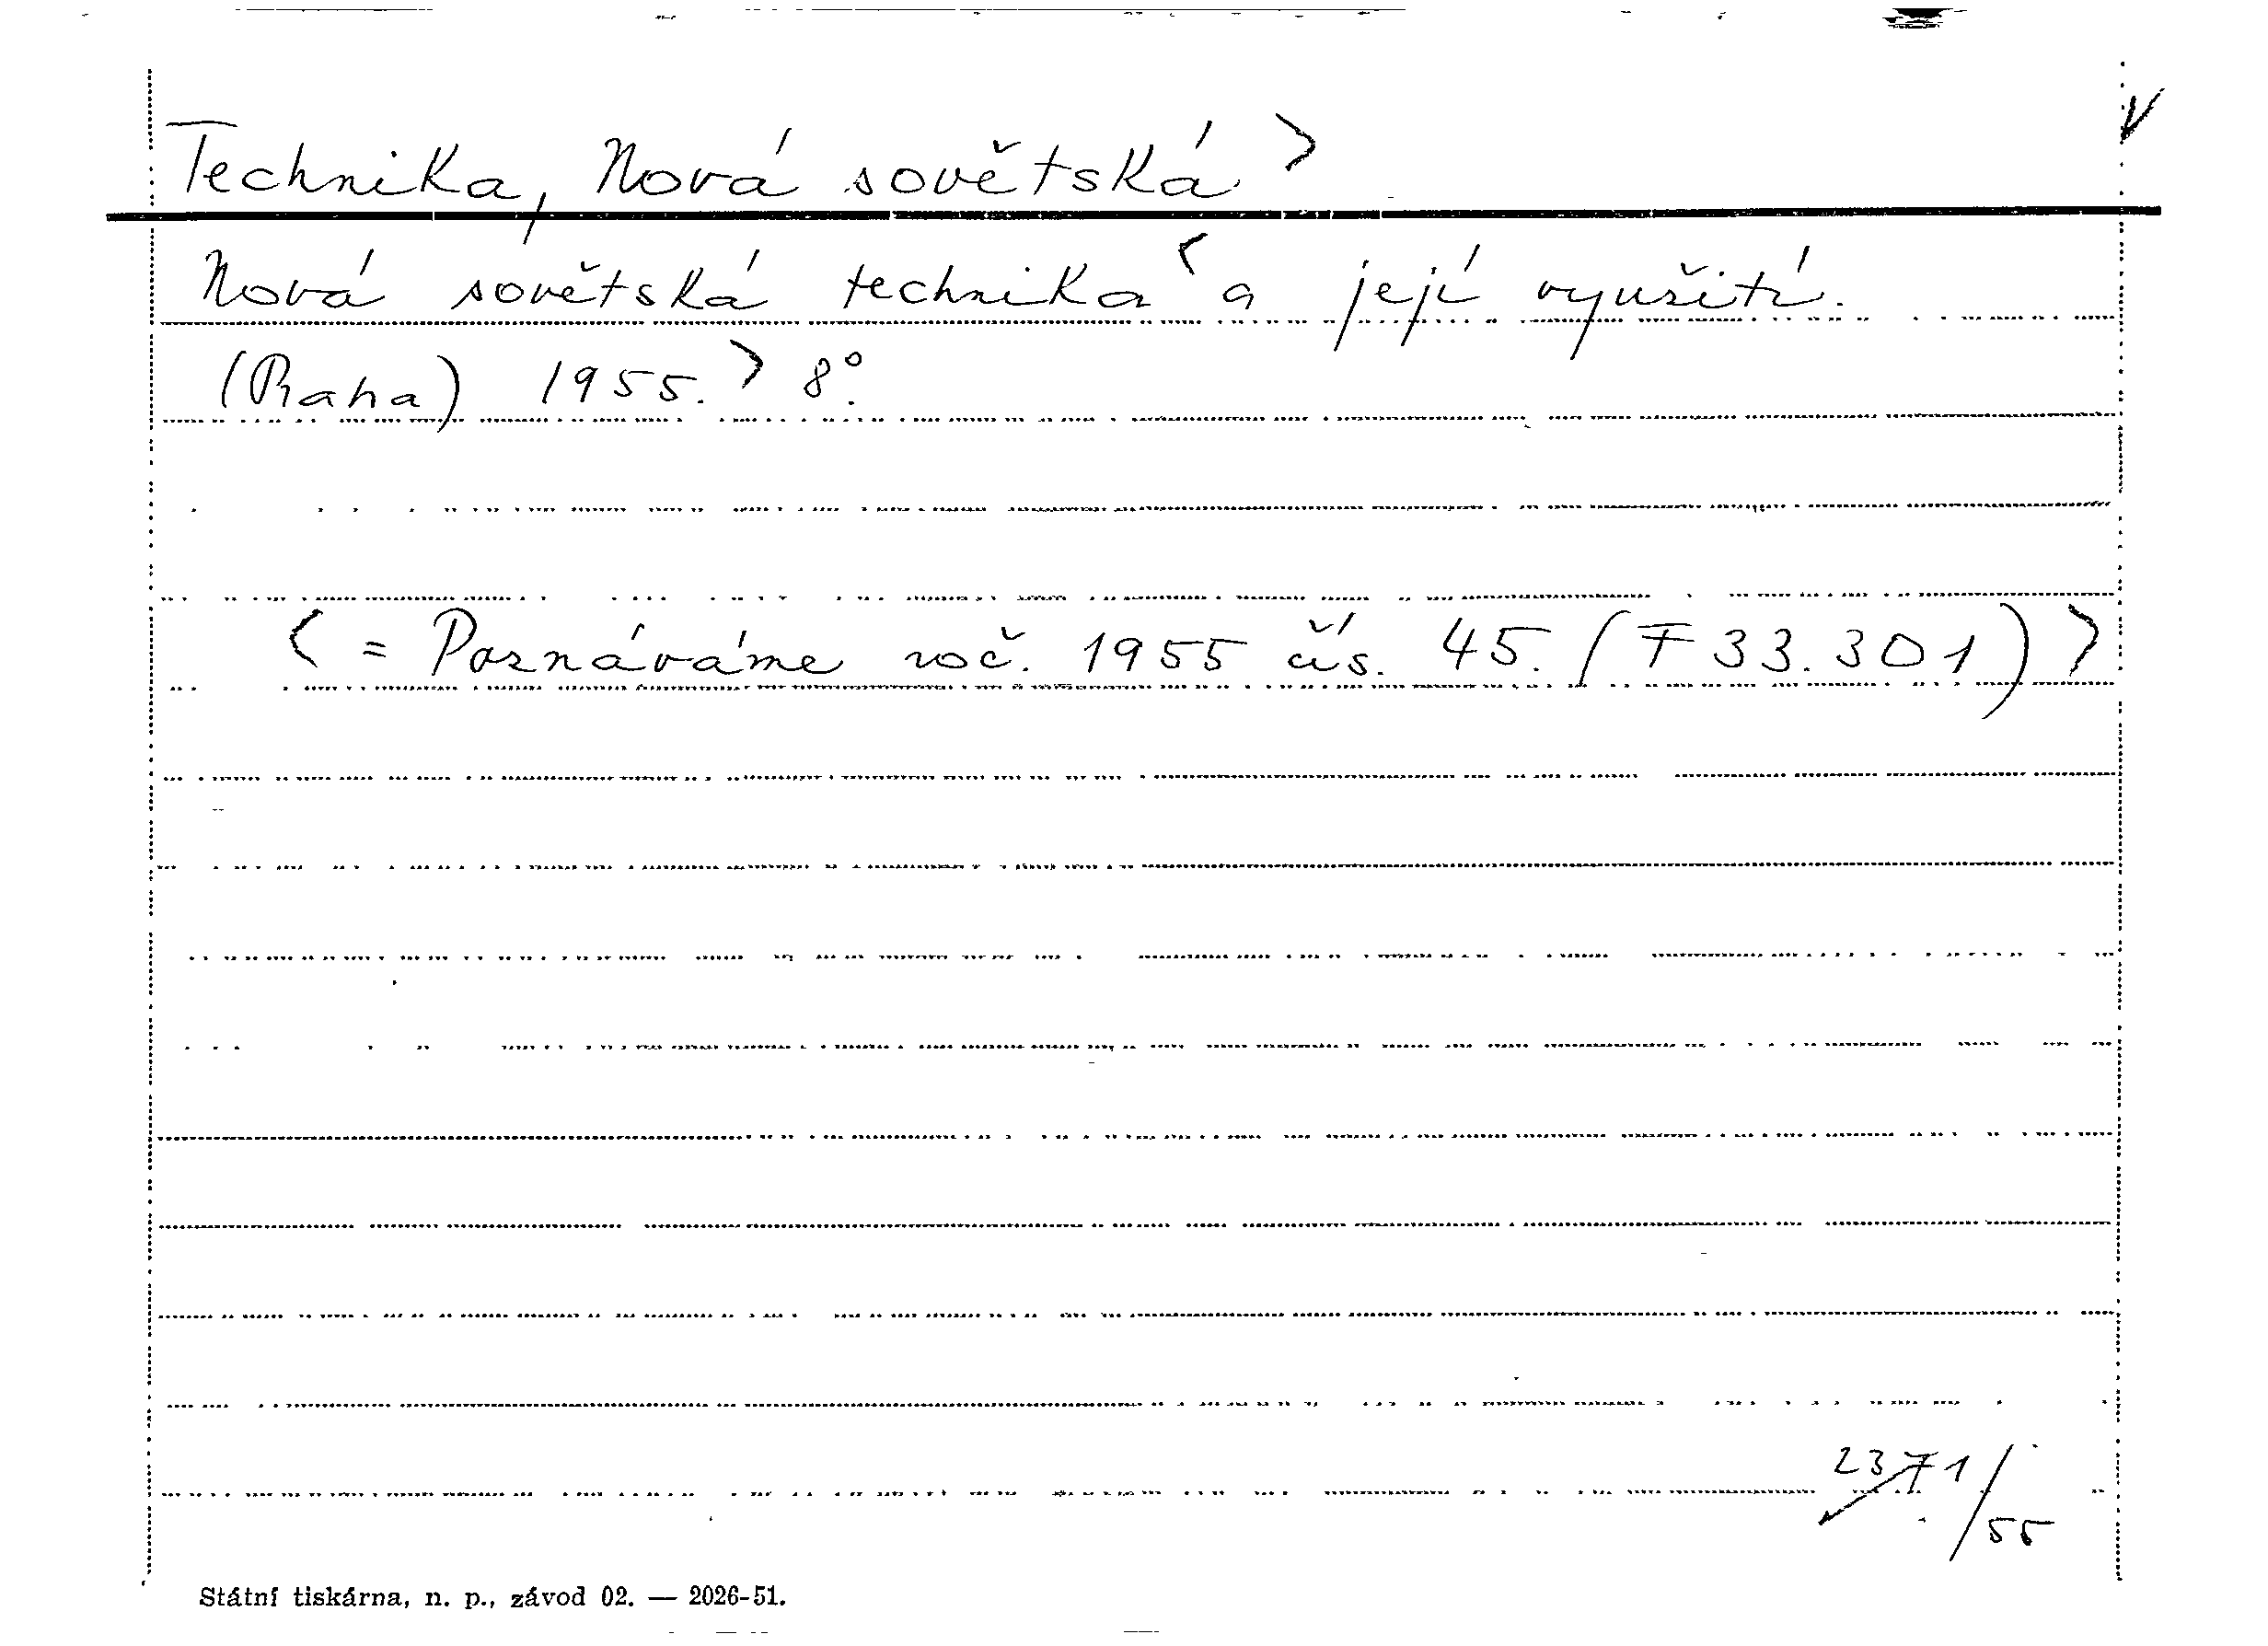 Technika, Nová sovětská >
Nová sovětská technika < a její využití.
(Praha) 1955. > 8°.
< = Poznáváme roč. 1955 čís. 45. (F 33.301) >
2371/55
Státní tiskárna, n. p., závod 02. — 2026-51.